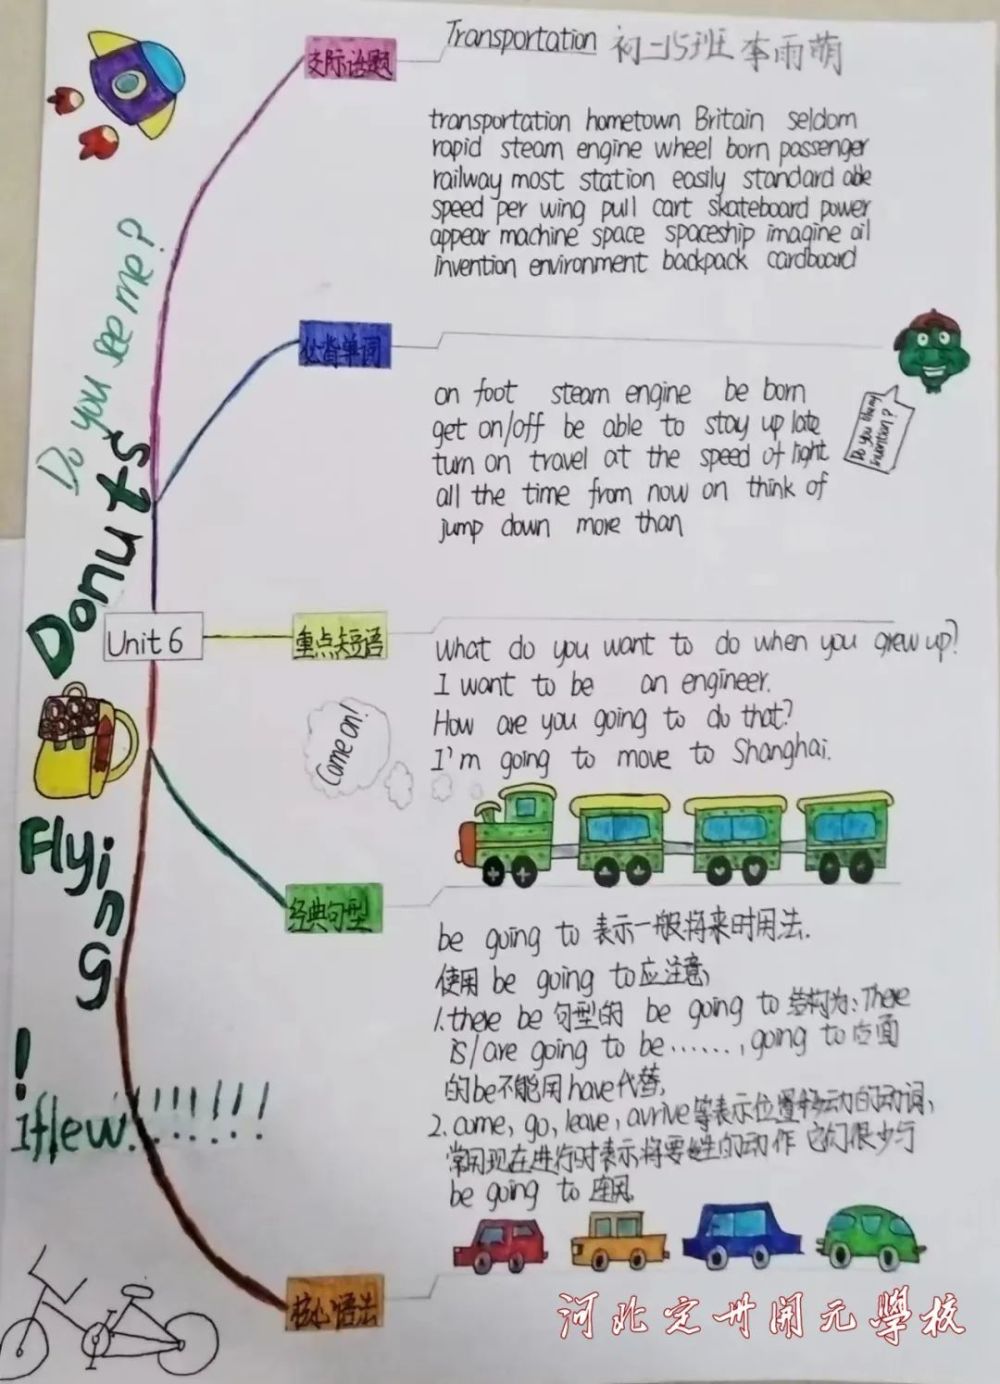 交际话题
Transportation 初二15班 李雨萌
transportation hometown Britain seldom
rapid steam engine wheel born passenger
railway most station easily standard able
speed per wing pull cart skateboard power
appear machine space spaceship imagine oil
invention environment backpack cardboard
Do you see me?
必背单词
on foot steam engine be born
get on/off be able to stay up late
turn on travel at the speed of light
all the time from now on think of
jump down more than
Do you like my invention?
Donuts
Unit 6
重点短语
What do you want to do when you grew up?
I want to be an engineer.
How are you going to do that?
I'm going to move to Shanghai.
Come on!
Flying
!
经典句型
be going to 表示一般将来时用法.
使用 be going to应注意,
1.there be 句型的 be going to 结构为:There
is/are going to be……,going to 后面
的be不能用have代替,
2.come, go, leave, arrive等表示位置移动的动词,
常用现在进行时表示将要发生的动作 它们很少与
be going to 连用
iflew!!!!!!!
核心语法
河北定州开元學校